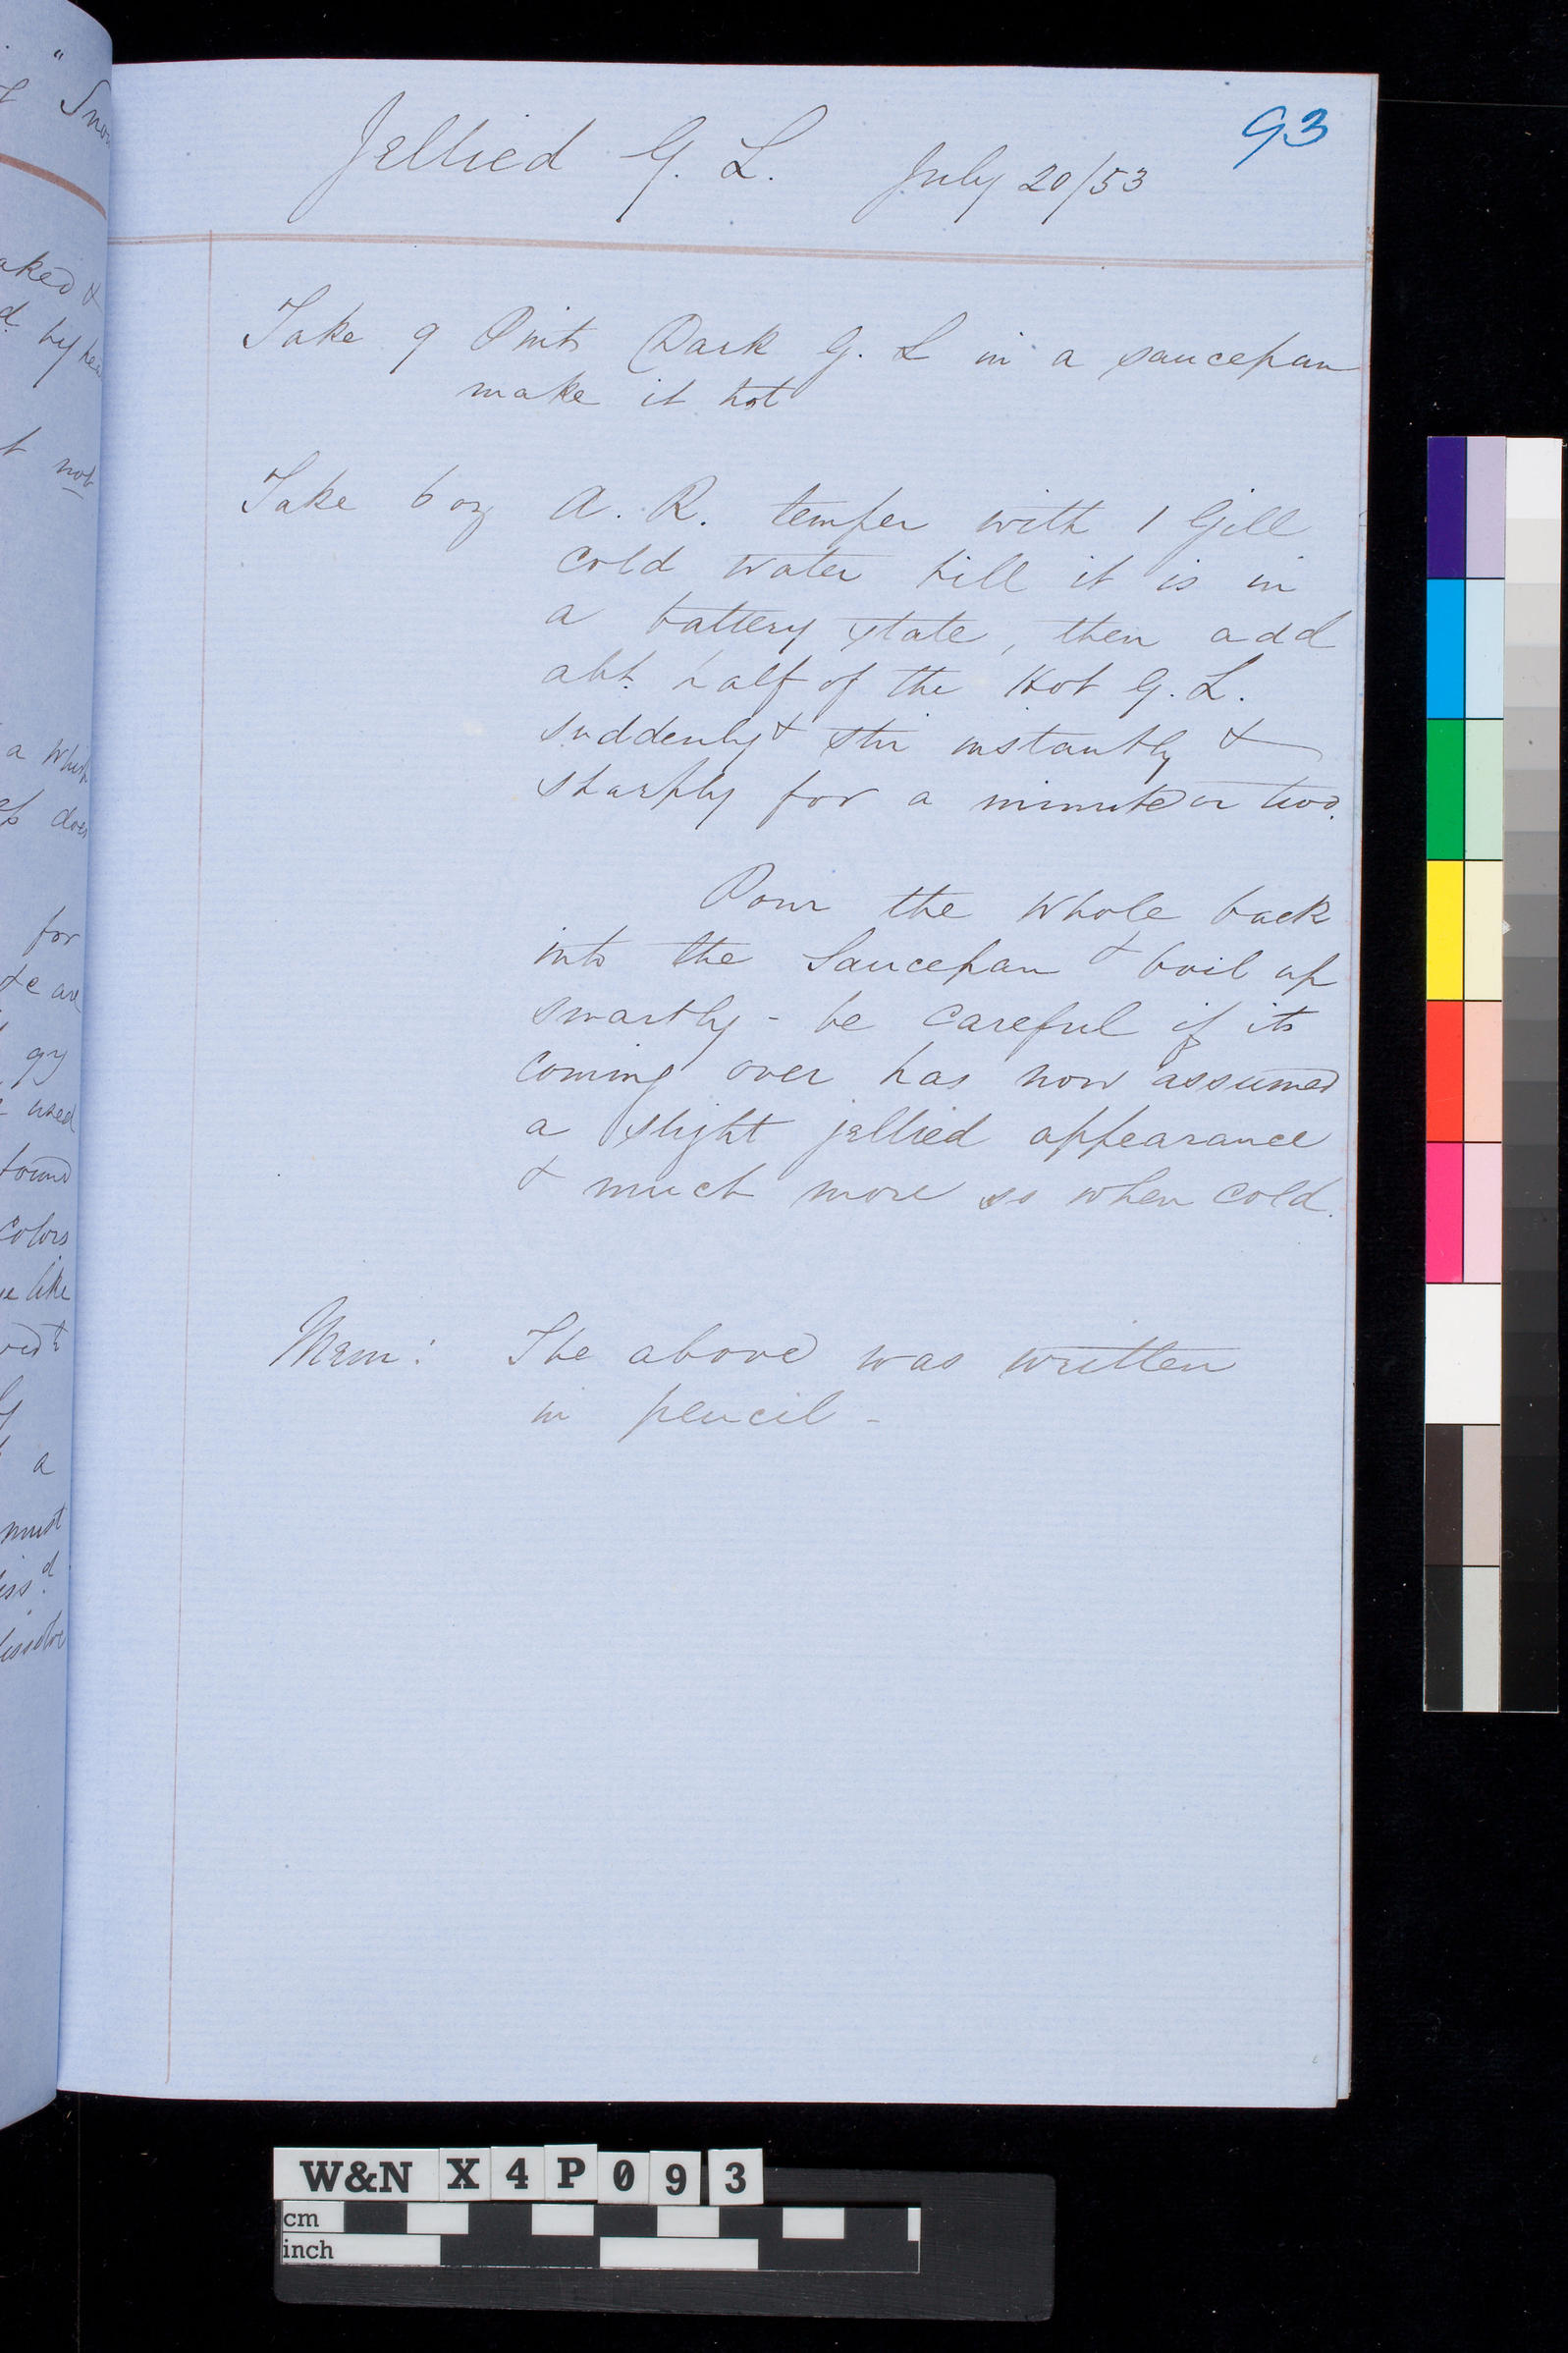 93
Jellied G. L. July 20/53
Take 9 Pints Dark G. L in a saucepan
make it hot
Take 6 oz A. R. temper with 1 Gill
cold water till it is in
a battery state, then add
abt. half of the Hot G. L.
suddenly & stir instantly &
sharply for a minute or two.
Pour the whole back
into the Saucepan & boil up
smartly - be careful of its
coming over has now assumed
a slight jellied appearance
& much more so when cold.
Mem: The above was written
in pencil -
aked &
d. by
t not
a
does
for
&c are
used
found
Colors
like
a
must
W&N X4P093
cm
inch